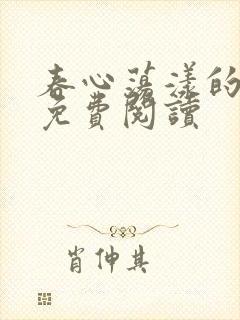 春心荡漾的
免費閱讀
肖伸其